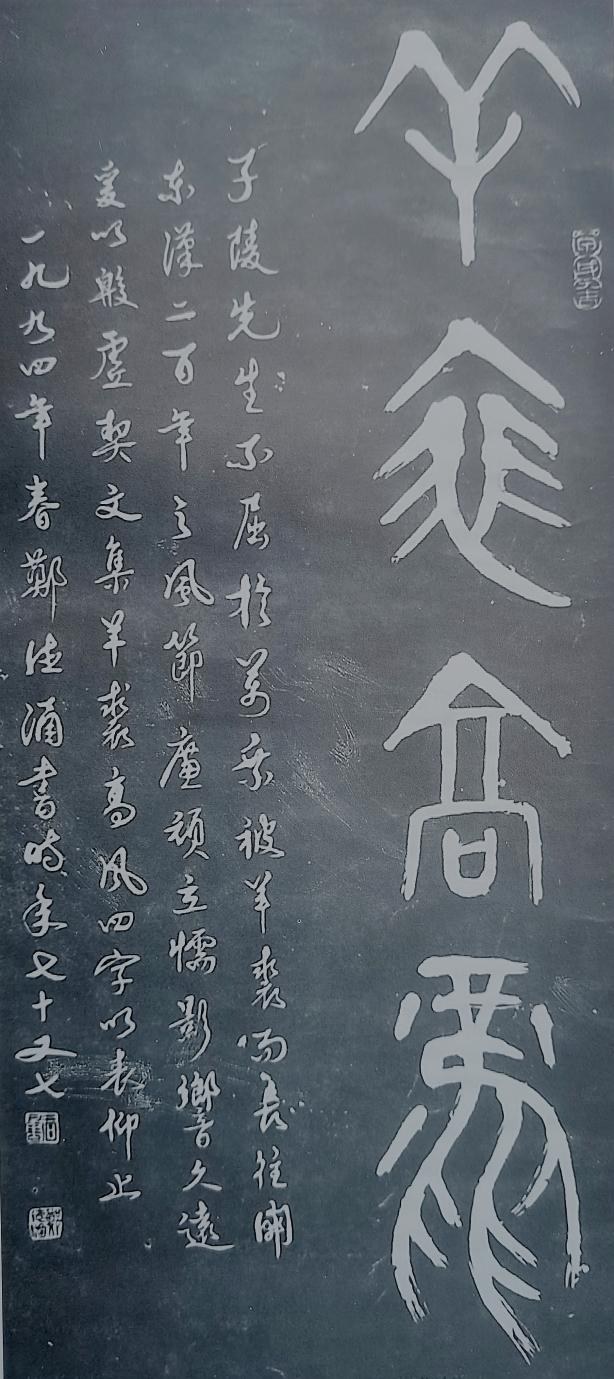 羊裘高風
子陵先生不屈於萬乘被羊裘而長往開
東漢二百年之風節廉頑立懦影響久遠
爰以殷虛契文集羊裘高風四字以表仰止
一九九四年春鄭德涌書時年七十又七